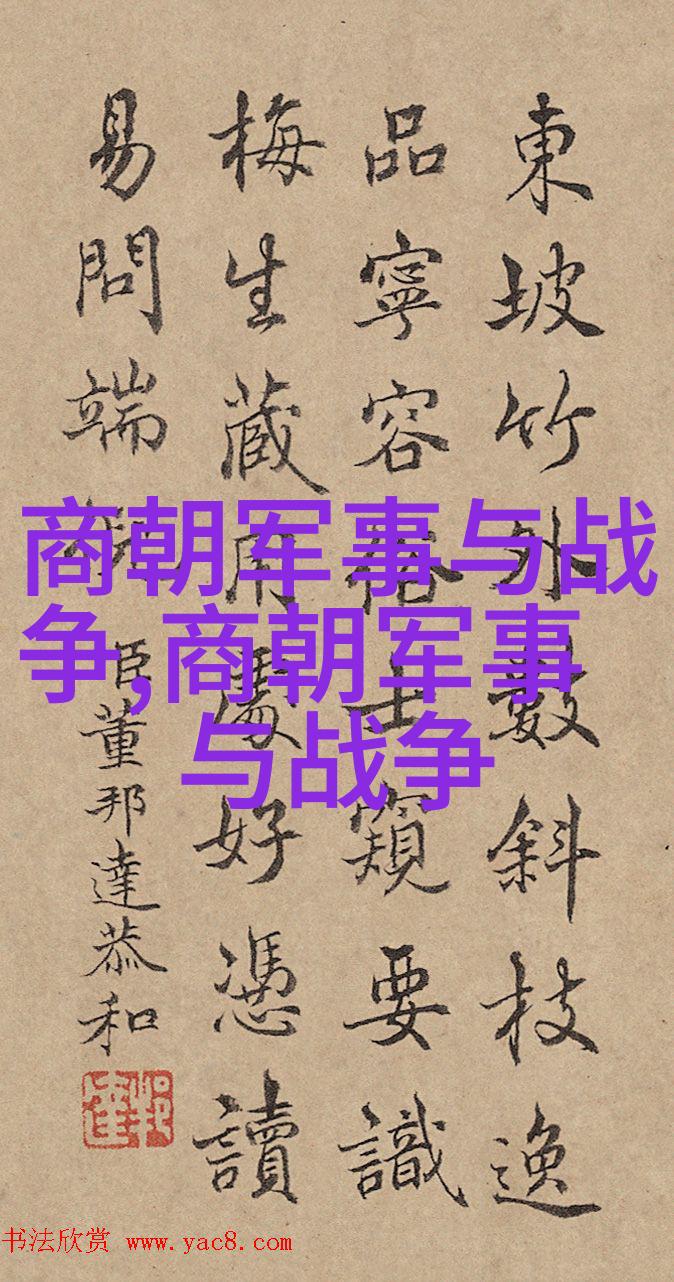 東坡竹外數斜枝逸
品寧容俗士窺要識
梅生藏用處好憑讀
易問端
臣董邦達恭和
邦達
商朝军事与战
争,商朝军事
与战争
书法欣赏 www.yac8.com